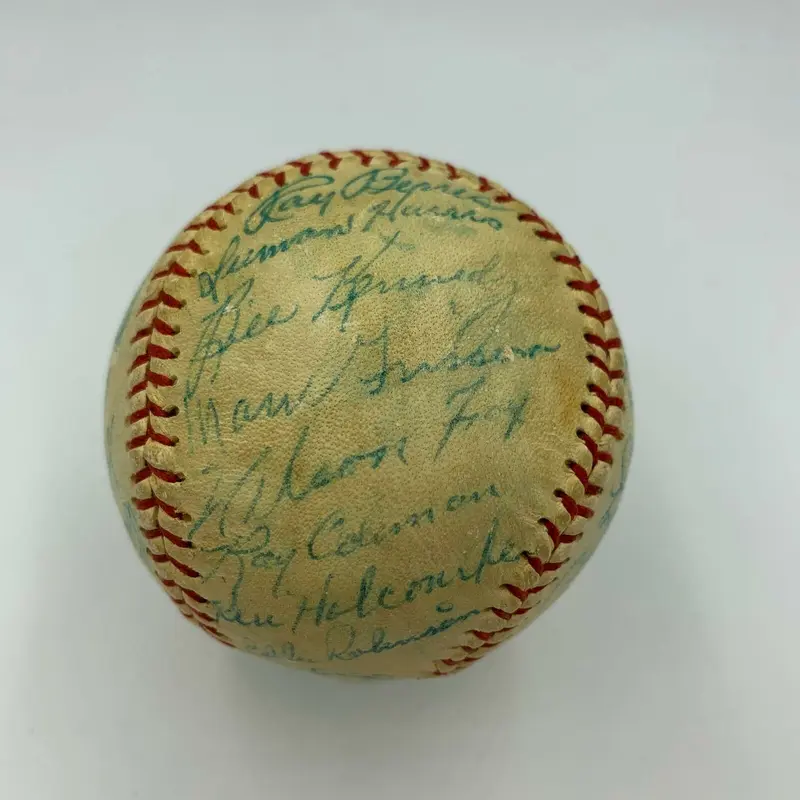 Ray Berres
Luman Harris
Bill Kennedy
Marv Grissom
Nelson Fox
Ray Coleman
Ken Holcombe
Eddie Robinson